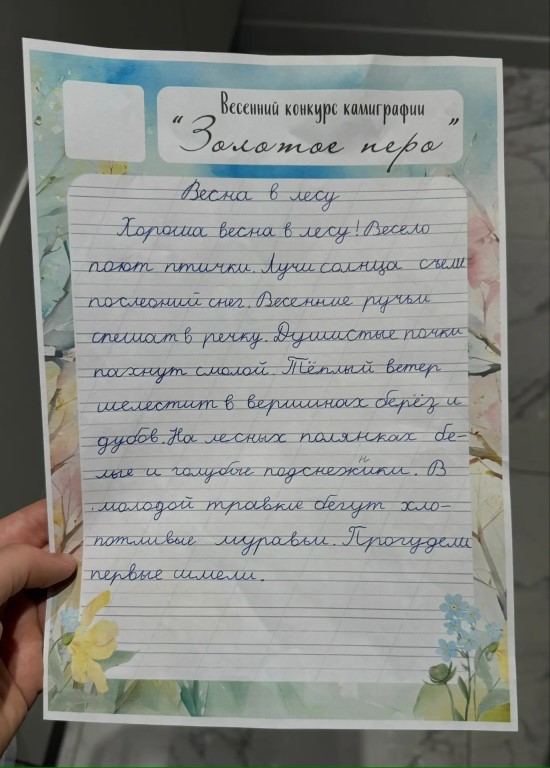 Весенний конкурс камиграфии
“Золотое перо”
Весна в лесу
Хороша весна в лесу! Весело
поют птички. Лучи солнца съели
последний снег. Весенние ручьи
спешат в речку. Душистые почки
пахнут смолой. Тёплый ветер
шелестит в вершинах берёз и
дубов. На лесных полянках бе-
лые и голубые подснежники. В
молодой травке бегут хло-
потливые муравьи. Прогудели
первые шмели.